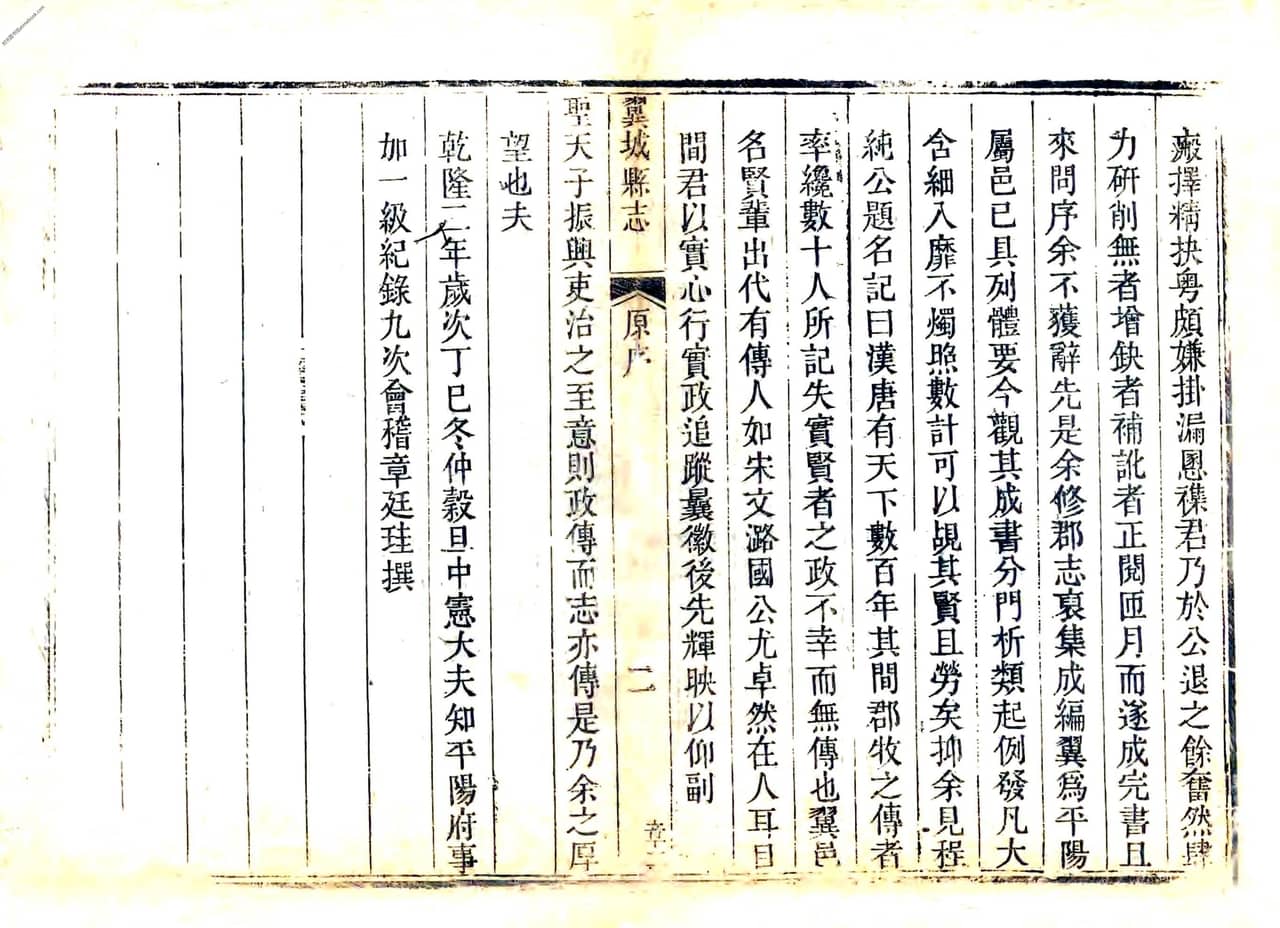 瘢擇精抉粤頗嫌掛漏恩褋君乃於公退之餘奮然肆
力研削無者增缺者補訛者正閱匝月而遂成完書且
來問序余不獲辭先是余修郡志裒集成編翼爲平陽
屬邑已具列體要今觀其成書分門析類起例發凡大
含細入靡不燭照數計可以覘其賢且勞矣抑余見程
純公題名記曰漢唐有天下數百年其間郡牧之傳者
率纔數十人所記失實賢者之政不幸而無傳也翼邑
名賢輩出代有傳人如宋文潞國公尤卓然在人耳目
間君以實心行實政追蹤曩徽後先輝映以仰副
翼城縣志 原序 二 章
聖天子振興吏治之至意則政傳而志亦傳是乃余之厚
望也夫
乾隆二年歲次丁巳冬仲穀旦中憲大夫知平陽府事
加一級紀錄九次會稽章廷珪撰